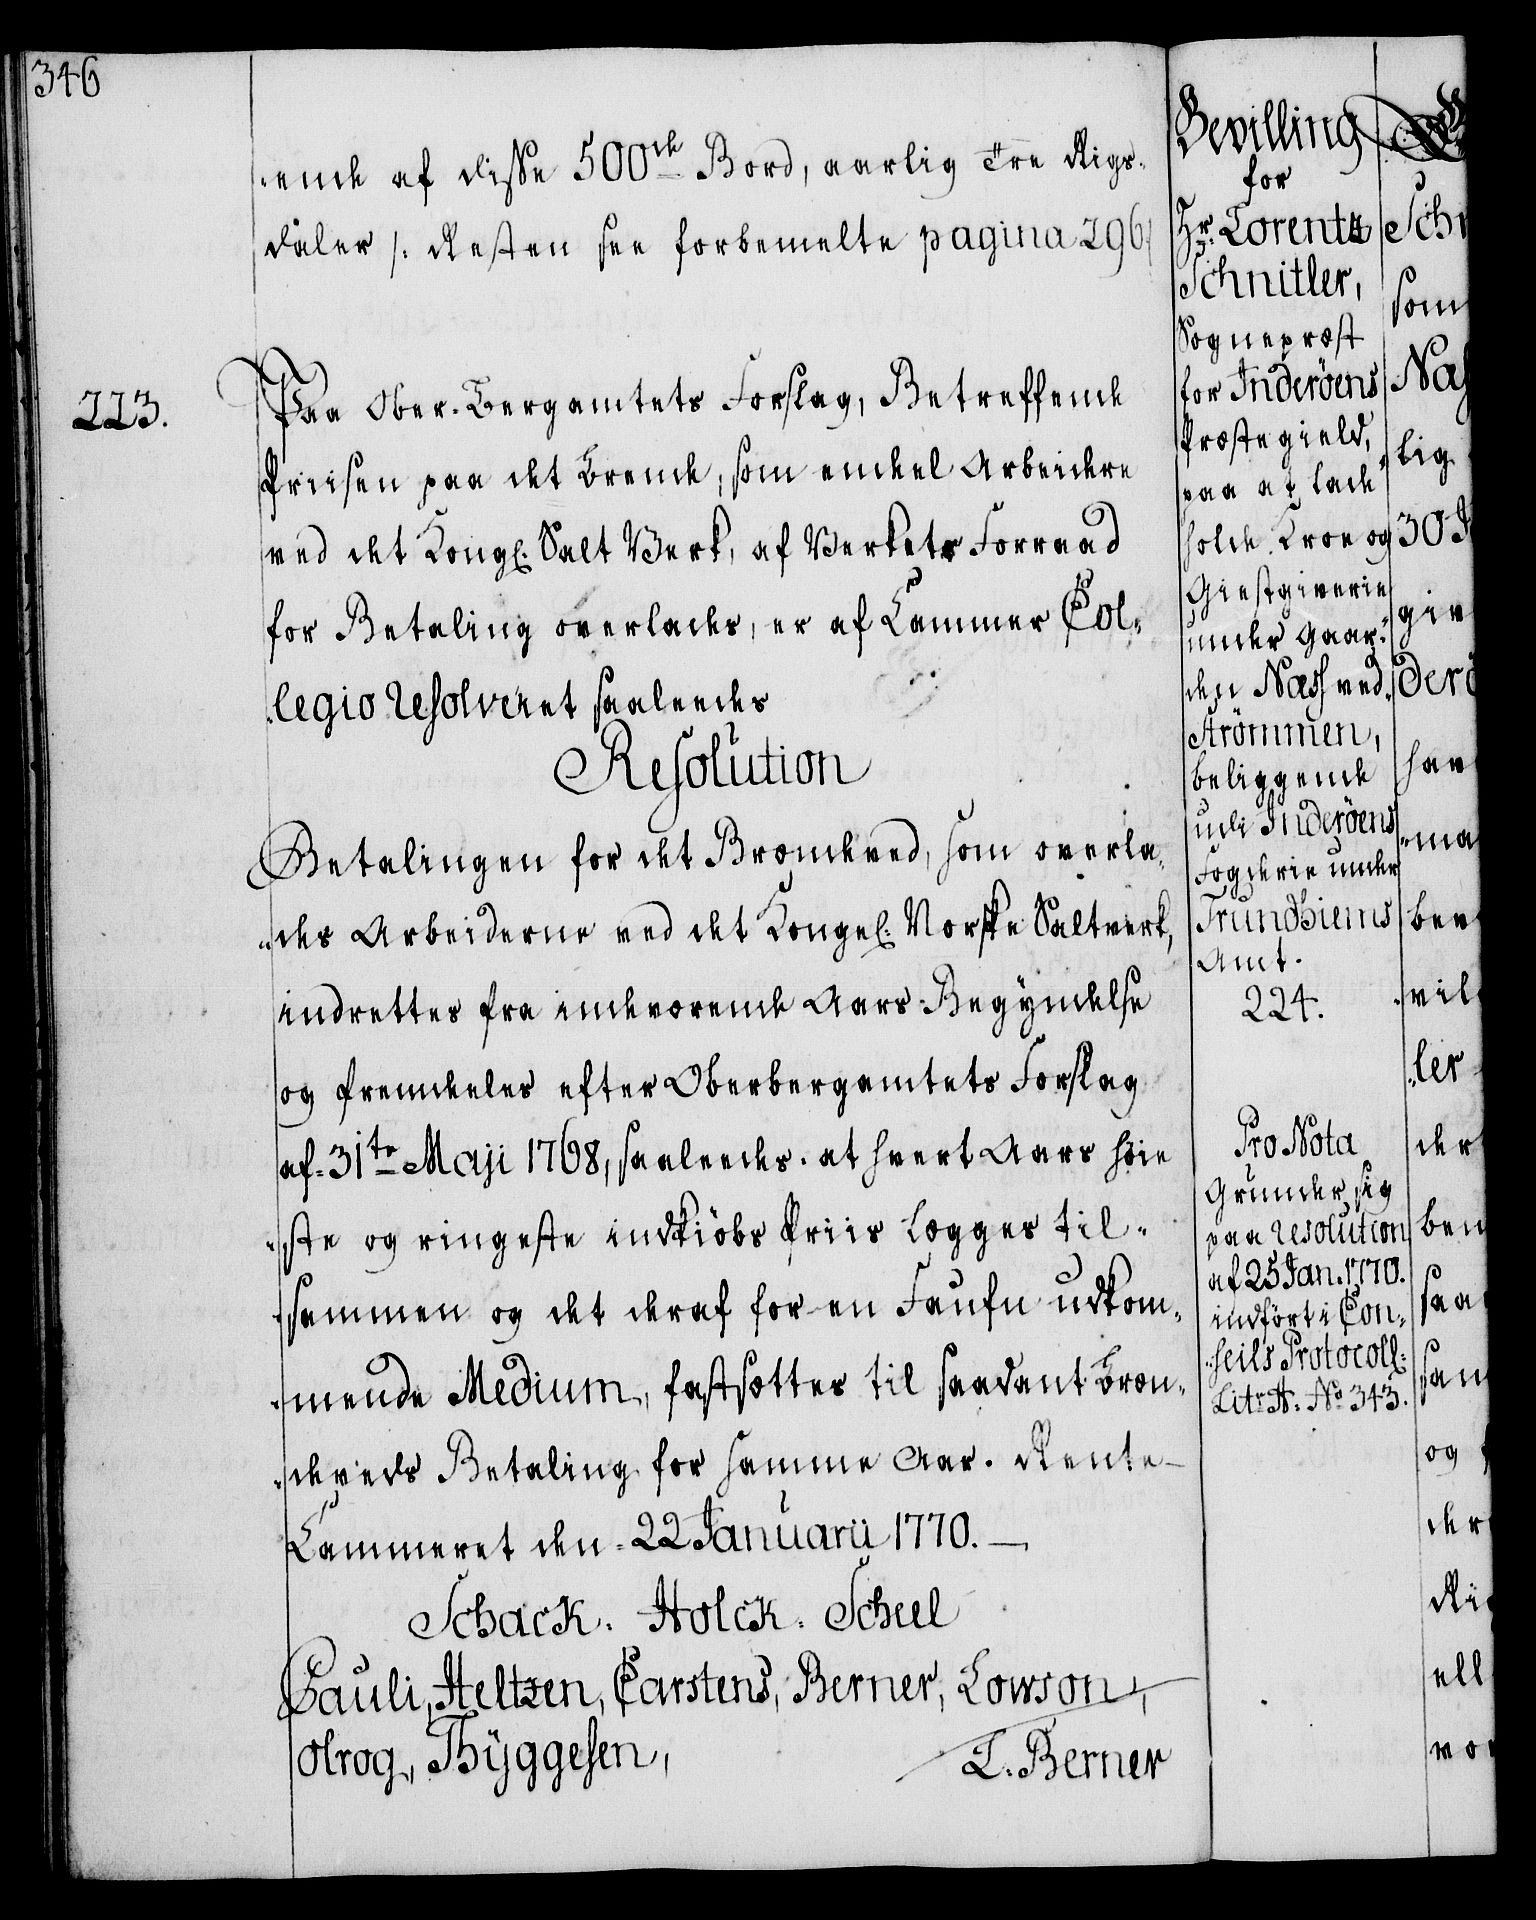 346
ende af disse 500de Bord, aarlig Tre Rigs-
daler /: Resten see forbemelte pagina 296/
223.
Paa Ober-Bergamtets Forslag, Betreffende
Priisen paa det Brende, som endeel Arbeidere
ved det Kongl: Salt Verk, af Verkets Forraad
for Betaling overlades, er af Cammer Col-
legio resolveret saaleedes
Resolution
Betalingen for det Brændeved, som overla-
des Arbeiderne ved det Kongel: Norske Saltverk,
indrettes fra indeværende Aars Begyndelse
og fremdeles efter Oberbergamtets Forslag
af 31te Maji 1768, saaleedes at hvert Aars høie
ste og ringeste indkiöbs Priis lægges til-
sammen og det deraf for en Faufn udkom-
mende Medium, fastsættes til saadant Bræn-
deveds Betaling for samme Aar. Rente-
Cammeret den 22 Januarii 1770.
Schack. Holck. Scheel
Pauli, Heltzen, Carstens, Berner, Lowson,
Olrog, Thÿggesen,
T. Berner
Bevilling
for
Hr. Lorentz
Schnitler,
Sognepræst
for Inderöens
Præstegield,
paa at lade
holde Kroe og
Giestgiverie
under Gaar-
den Næss ved
Strömmen,
beliggende
udi Inderöens
Fogderie under
Trundhiems
Amt.
224.
Pro Nota
Grunder sig
paa resolution
af 25 Jan. 1770.
indfört i Con-
seils Protocoll:
Litr. A. No 343.
Sch
som
Næs
lig
30
giv
derö
hav
ma
bev
vil
ler
der
ben
saa
sam
og
der
Ri
ell
vo